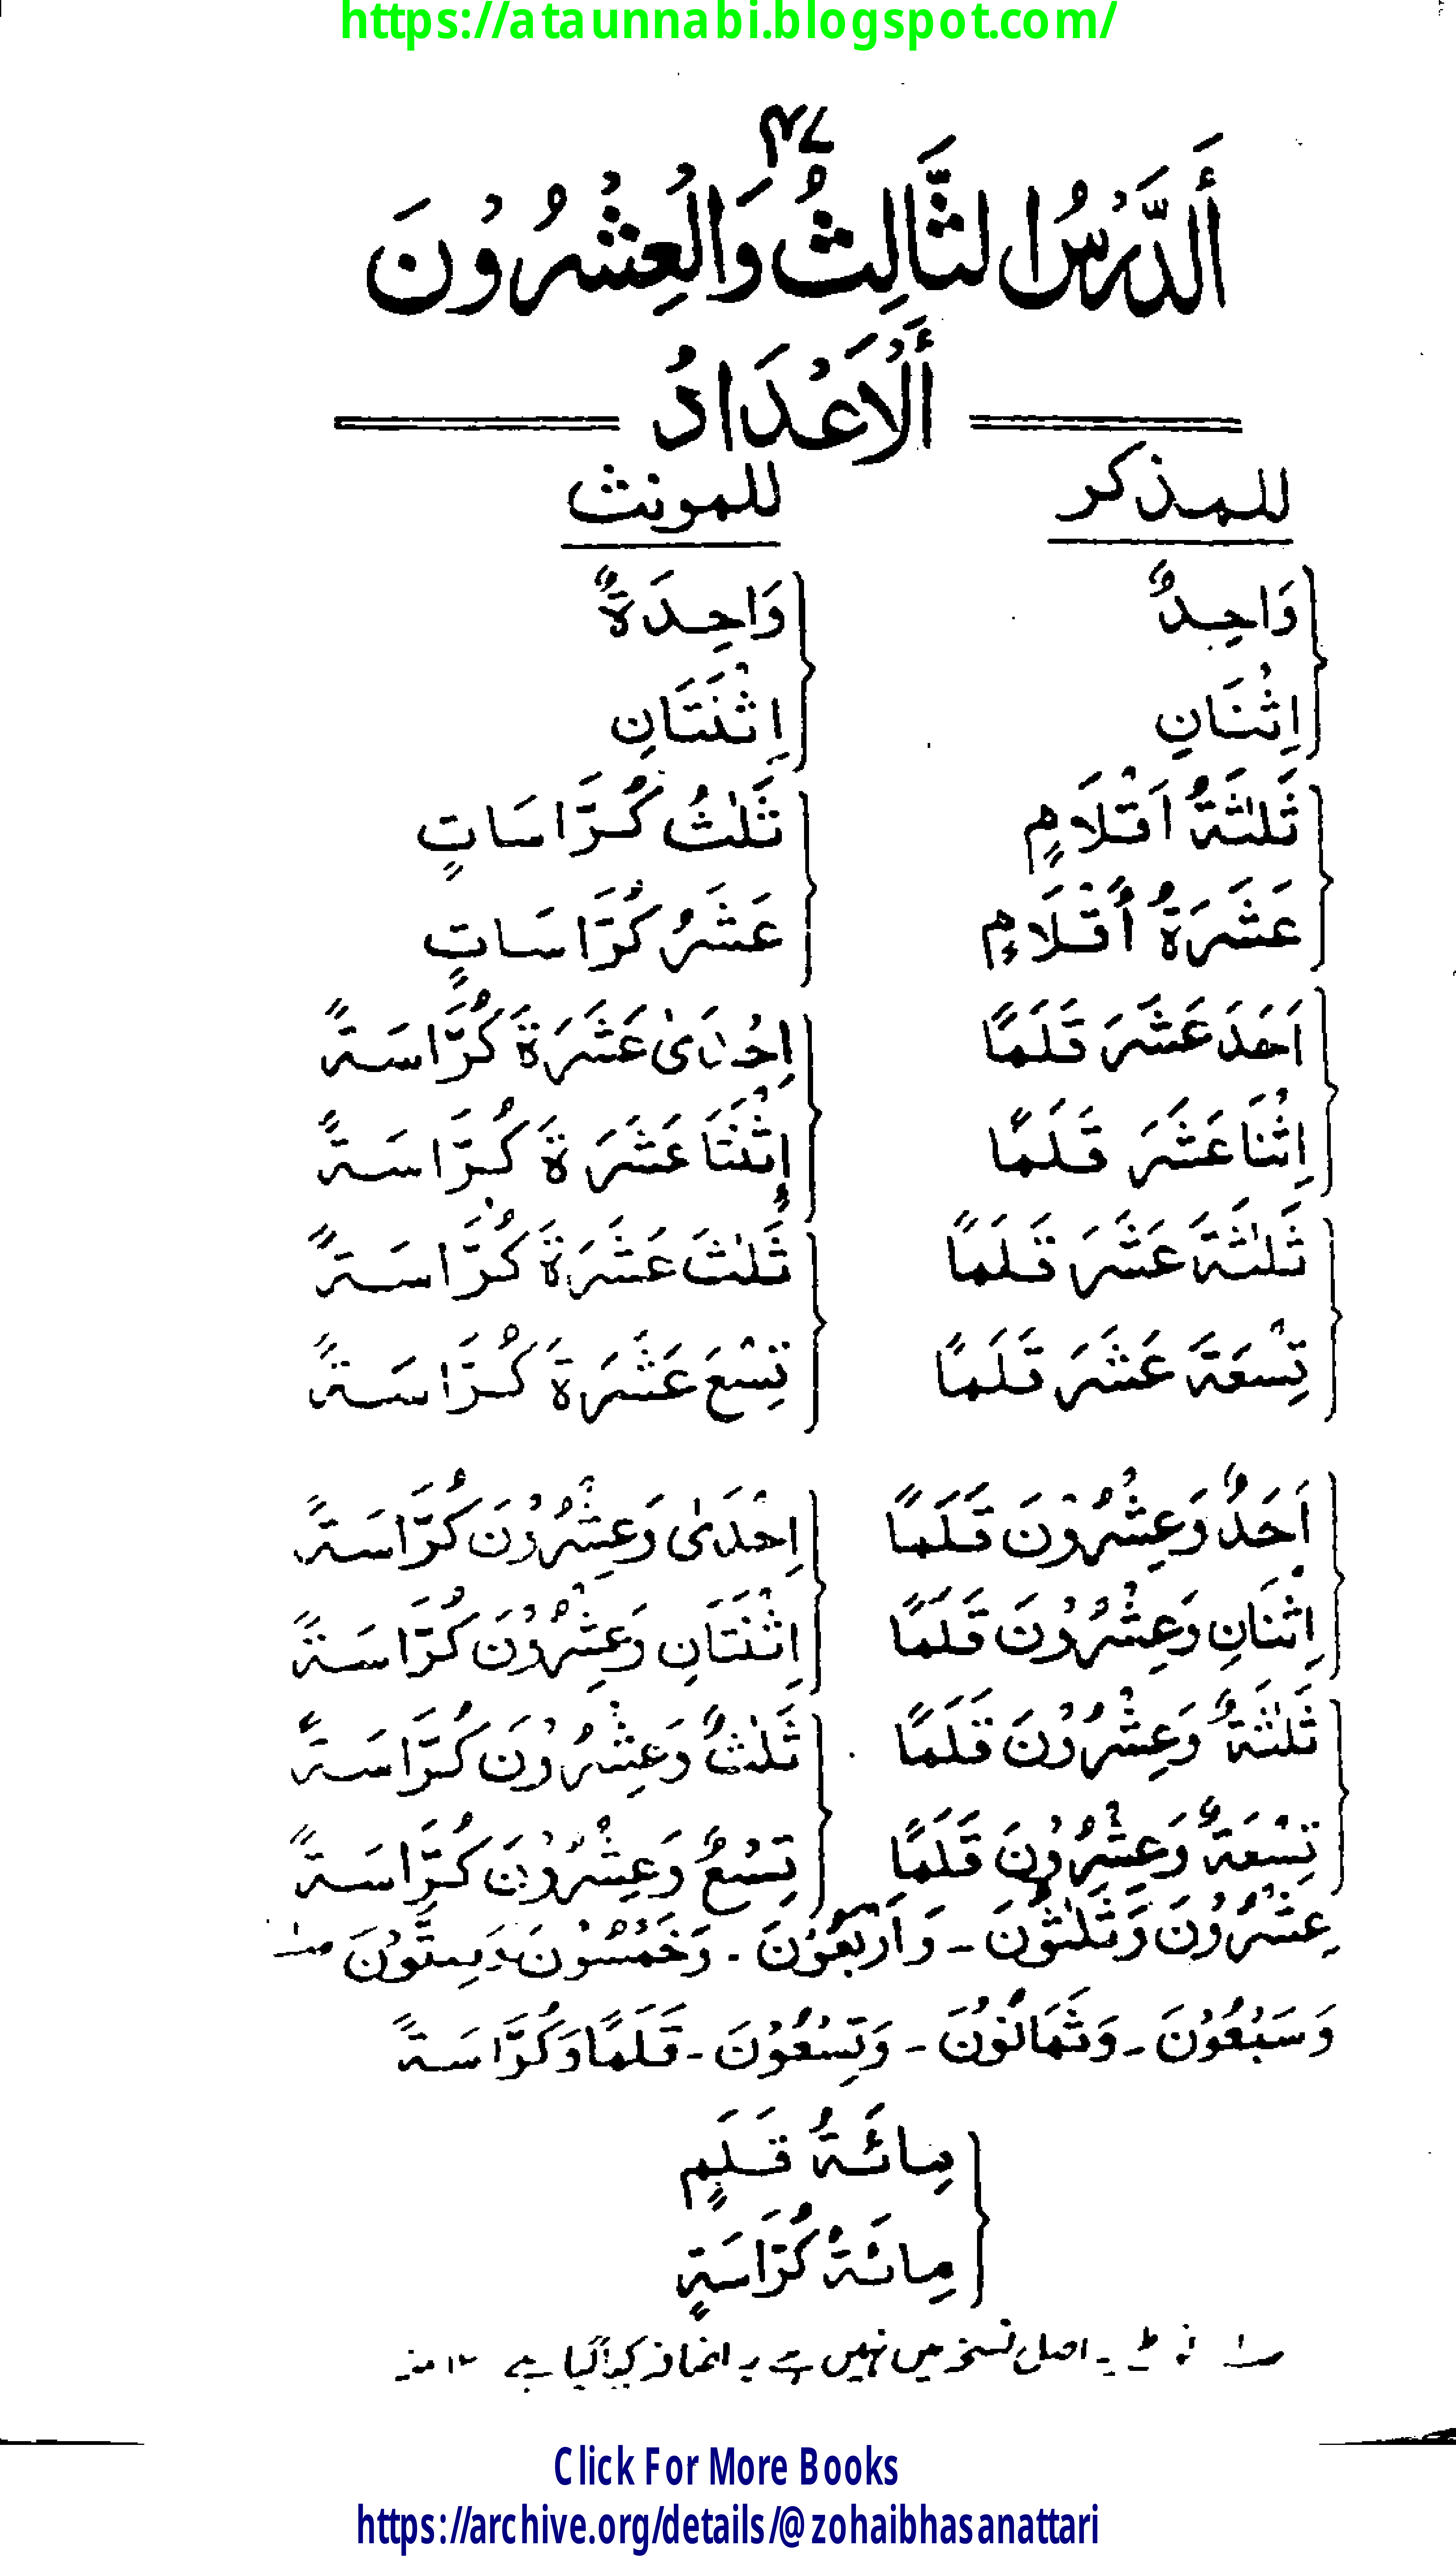 https://ataunnabi.blogspot.com/
۴۷
أَلدَّرْسُ الثَّالِثُ وَالْعِشْرُوْنَ
أَلْاَعْدَادُ
للمذكر
للمونث
وَاحِدٌ
وَاحِدَةٌ
اِثْنَانِ
اِثْنَتَانِ
ثَلٰثَةُ اَقْلَامٍ
ثَلٰثُ كُرَّاسَاتٍ
عَشَرَةُ أَقْلَامٍ
عَشَرُ كُرَّاسَاتٍ
اَحَدَ عَشَرَ قَلَمًا
اِحْدَىٰ عَشَرَةَ كُرَّاسَةً
اِثْنَا عَشَرَ قَلَمًا
اِثْنَتَا عَشَرَةَ كُرَّاسَةً
ثَلٰثَةَ عَشَرَ قَلَمًا
ثَلٰثَ عَشَرَةَ كُرَّاسَةً
تِسْعَةَ عَشَرَ قَلَمًا
تِسْعَ عَشَرَةَ كُرَّاسَةً
اَحَدٌ وَعِشْرُوْنَ قَلَمًا
اِحْدَىٰ وَعِشْرُوْنَ كُرَّاسَةً
اِثْنَانِ وَعِشْرُوْنَ قَلَمًا
اِثْنَتَانِ وَعِشْرُوْنَ كُرَّاسَةً
ثَلٰثَةٌ وَعِشْرُوْنَ قَلَمًا
ثَلٰثٌ وَعِشْرُوْنَ كُرَّاسَةً
تِسْعَةٌ وَعِشْرُوْنَ قَلَمًا
تِسْعٌ وَعِشْرُوْنَ كُرَّاسَةً
عِشْرُوْنَ وَثَلٰثُوْنَ - وَاَرْبَعُوْنَ - وَخَمْسُوْنَ وَسِتُّوْنَ
وَسَبْعُوْنَ - وَثَمَانُوْنَ - وَتِسْعُوْنَ - قَلَمًا وَكُرَّاسَةً
مِائَةُ قَلَمٍ
مِائَةُ كُرَّاسَةٍ
نوٹ یہ اصل نسخہ میں نہیں ہے یہ اضافہ کیا گیا ہے ۱۲ منہ
Click For More Books
https://archive.org/details/@zohaibhasanattari